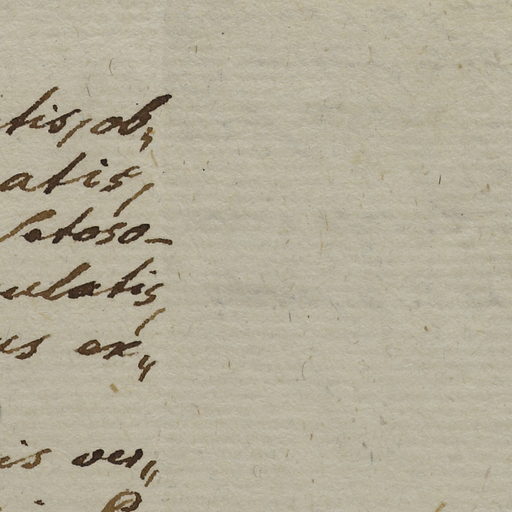 tis, ob„
atis,
setoso-
ulatis,
us ex„
is ver„